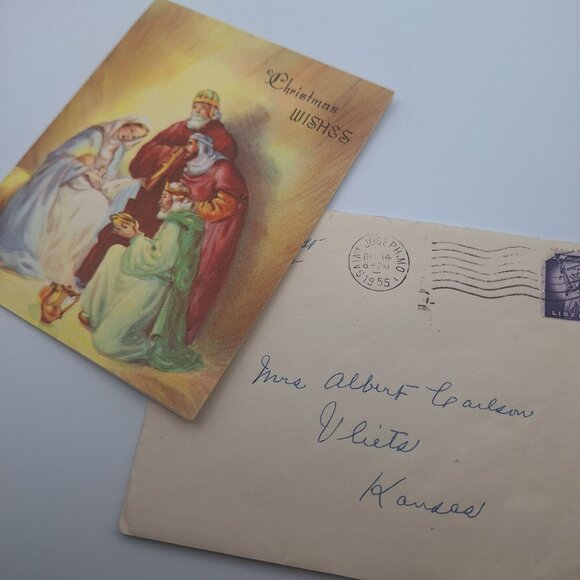 Christmas
WISHES
SAINT JOSEPH, MO.
DEC 14
8 - PM
1955
LIBE
Mrs Albert Carlson
Vliets
Kansas